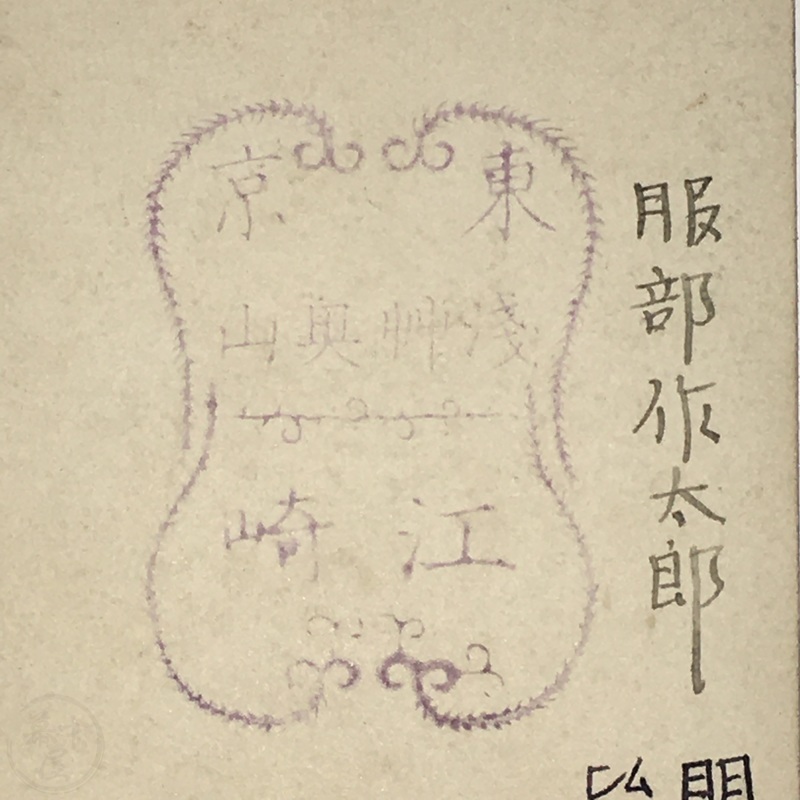 服部作太郎
東京
淺艸奥山
江崎